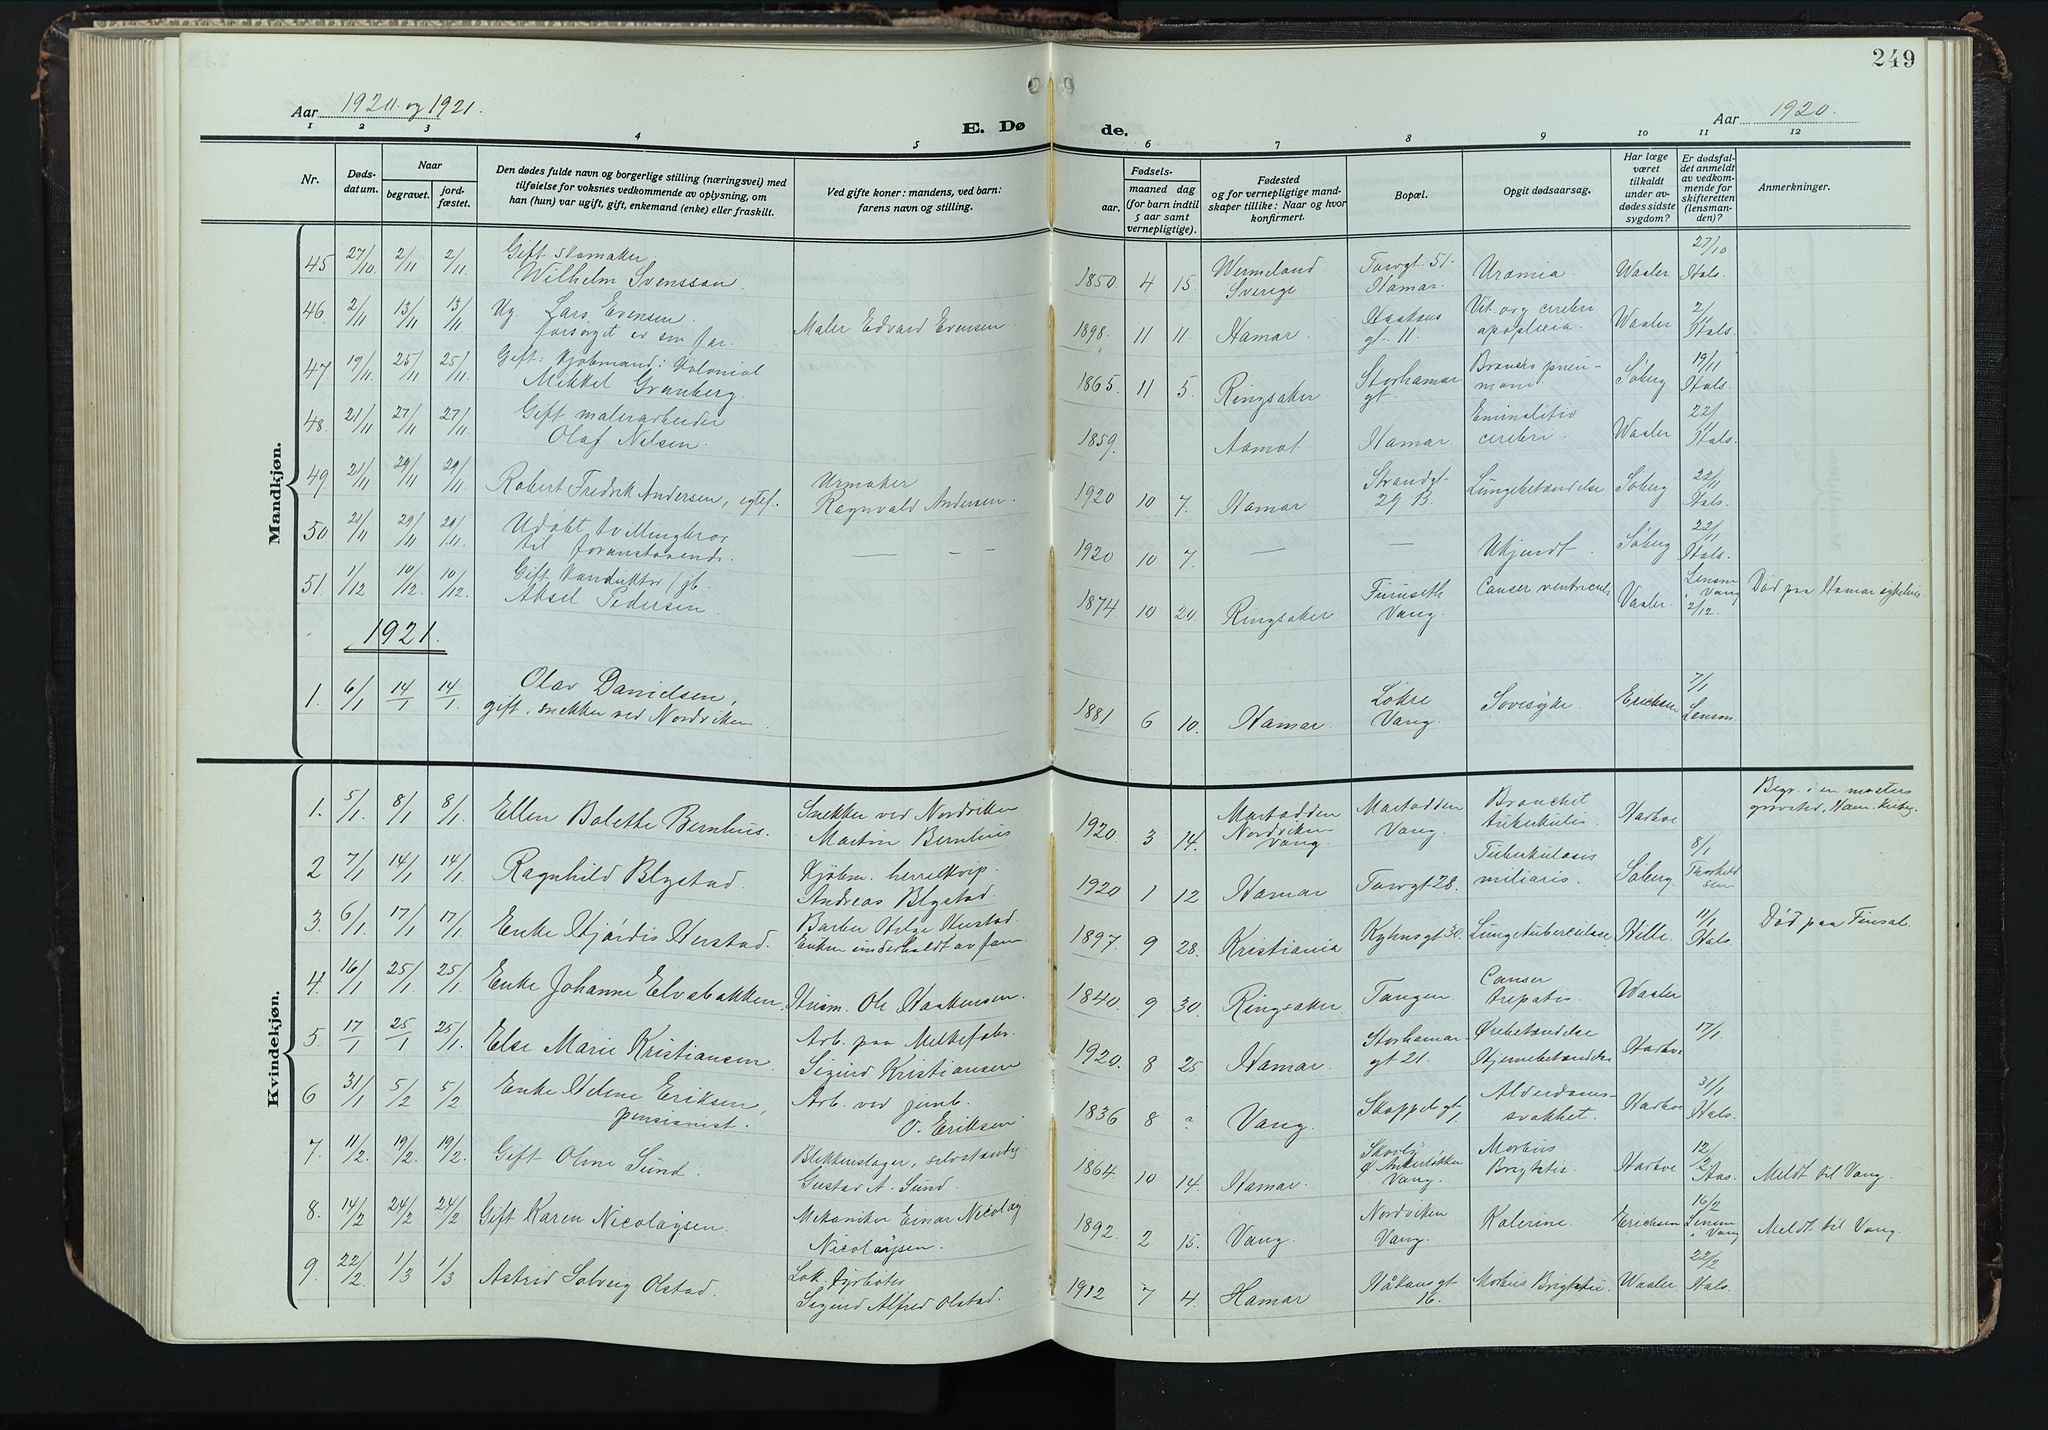 249
Aar 1920 og 1921.
E. Døde.
Aar 1920.
1 2 3 4 5 6 7 8 9 10 11 12
Nr.
Døds-
datum.
Naar
begravet.
jord-
fæstet.
Den dødes fulde navn og borgerlige stilling (næringsvei) med
tilføielse for voksnes vedkommende av oplysning, om
han (hun) var ugift, gift, enkemand (enke) eller fraskilt.
Ved gifte koner: mandens, ved barn:
farens navn og stilling.
Fødsels-
aar.
maaned dag
(for barn indtil
5 aar samt
vernepligtige).
Fødested
og for vernepligtige mand-
skaper tillike: Naar og hvor
konfirmert.
Bopæl.
Opgit dødsaarsag.
Har læge
været
tilkaldt
under av-
dødes sidste
sygdom?
Er dødsfal-
det anmeldt
av vedkom-
mende for
skifteretten
(lensman-
den)?
Anmerkninger.
Mandkjøn.
45 27/10 2/11 2/11 Gift skomaker
Wilhelm Svensson. 1850. 4 15. Wermeland
Sverige Torvgt. 51.
Hamar. Uræmia. Waaler 27/10
Hals.
46. 2/11 13/11 13/11 Ug. Lars Evensen.
forsørget av sin far. Maler Edvard Evensen 1898. 11 11. Hamar gt. 11. Vit. org cerebri
apoplexia. Waaler 2/11
Hals.
47 19/11. 25/11 25/11. Gift: Kjøbmand: Kolonial
Mikkel Granberg. 1865. 11 5. Ringsaker Storhamar
gt. Broncho pneu-
moni Søberg 19/11
Hals.
48. 21/11 27/11 27/11. Gift malerarbeider
Olaf Nilsen. 1859. Aamot Hamar. cerebri. Waaler 22/11
Hals.
49 21/11 29/11 29/11. Robert Fredrik Andersen, egtef. Urmaker
Ragnvald Andersen. 1920 10 7. Hamar Strandgt
29 B. Lungebetændelse Søberg 22/11
Hals.
50. 21/11 29/11 29/11. Udøbt tvillingbror
til foranstaaende. — — 1920 10 7. — — Ukjendt. Søberg 22/11
Hals.
51. 1/12 10/12. 10/12. Gift konduktør /gb.
Aksel Pedersen. 1874. 10 24. Ringsaker Furuseth
Vang. Canser ventriculi Vaaler. Lensm.
i Vang
2/12. Død paa Hamar sykehus.
1921.
1. 6/1 14/1 14/1. Olav Danielsen,
gift, snekker ved Nordviken. 1881. 6 10. Hamar. Løkre
Vang. Sovesyke. Ericksen 7/1
Lensm.
Kvindekjøn.
1. 5/1. 8/1 8/1 Ellen Bolette Bernhus. Snekker ved Nordviken
Martin Bernhus 1920. 3 14. Martodden
Nordviken
Vang. Martodden
Vang. Bronchit
tuberkulös. Harboe Begr. i en mosters
gravsted, Ham. kirkeg.
2 7/1 14/1 14/1. Ragnhild Blystad. Kjøbm. herrekvip.
Andreas Blystad. 1920. 1 12 Hamar Torvgt 28. Tuberkulosis
miliaris. Søberg. 8/1
Thorkild
sen
3. 6/1. 17/1 17/1. Enke Hjørdis Herstad. Barber Helge Herstad.
Enken underholdt av fam. 1897. 9 28. Kristiania Kyhnsgt 30. Lungetuberculose Hille. 11/1
Hals. Død paa Finsal.
4. 16/1 25/1 25/1. Enke Johanne Elvabakken. Husm. Ole Haakensen. 1840. 9 30. Ringsaker. Tangen. Canser
hepatis. Waaler
5. 17/1 25/1 25/1. Else Marie Kristiansen. Arb. paa Melkefabr.
Sigurd Kristiansen 1920. 8 25. Hamar. Storhamar-
gt 21. Ørebetændelse
Hjernebetændelse Harboe 17/1.
6 31/1 5/2 5/2. Enke Helene Eriksen,
pensionist. Arb. ved jernb.
O. Eriksen 1836 8 ? Vang. Skappelgt
1. Alderdoms-
svakhet. Harboe 31/1
Hals.
7. 11/2. 19/2. 19/2. Gift Oline Sund. Blikkenslager, selvstændig
Gustad A. Sund. 1864. 10 14. Hamar. Skovly
Ø Ankerløkken
Vang. Morbus
Brightii. Harboe 12/2
Hals. Meldt til Vang.
8. 14/2 24/2 24/2 Gift Karen Nicolaysen. Mekaniker Einar Nicolay
Nicolaysen. 1892. 2 15. Vang. Nordviken
Vang. Ericksen 16/2
Lensm.
i Vang Meldt til Vang.
9. 22/2. 1/3 1/3 Astrid Solveig Olstad. Lok. fyrbøter
Sigurd Alfred Olstad. 1912 7 4. Hamar Håkonsgt
16. Morbus Brightii Waaler 22/2
Hals.